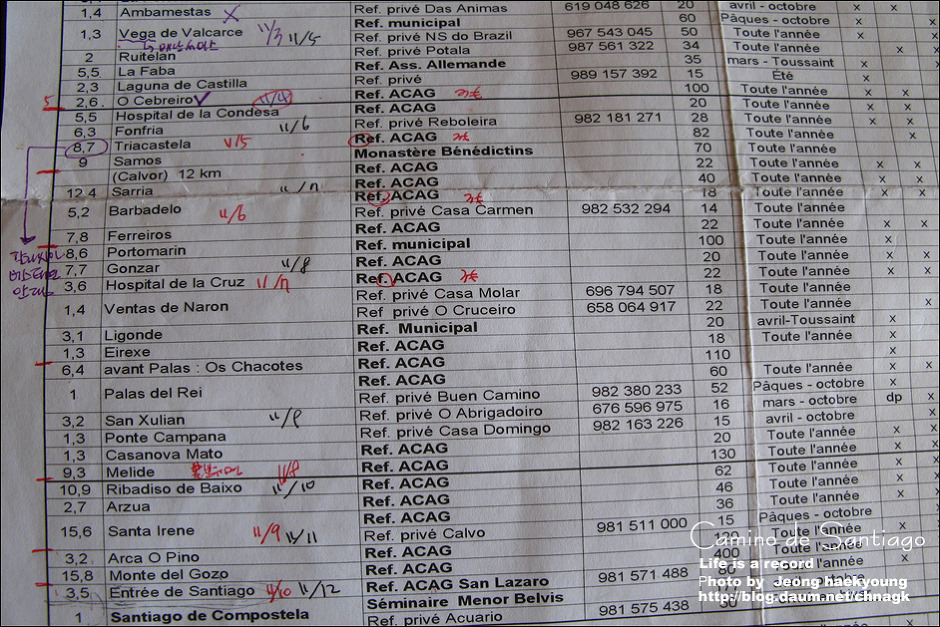 1,4 Ambamestas X Ref. privé Das Animas 619 048 626 20 avril - octobre
Ref. municipal 60 Pâques - octobre x
1,3 Vega de Valcarce 11/3 11/5 Ref. privé NS do Brazil 967 543 045 50 Toute l'année x
2 Ruitelan Ref. privé Potala 987 561 322 34 Toute l'année x x
5,5 La Faba Ref. Ass. Allemande 35 mars - Toussaint x
2,3 Laguna de Castilla Ref. privé 989 157 392 15 Été x
5 2,6 O Cebreiro 11/4 Ref. ACAG 3€ 100 Toute l'année x x
5,5 Hospital de la Condesa Ref. ACAG 20 Toute l'année x x
6,3 Fonfria 11/6 Ref. privé Reboleira 982 181 271 28 Toute l'année x x
8,7 Triacastela 11/5 Ref. ACAG 3€ 82 Toute l'année x
9 Samos Monastère Bénédictins 70 Toute l'année
(Calvor) 12 km Ref. ACAG 22 Toute l'année x x
12,4 Sarria 11/7 Ref. ACAG 40 Toute l'année x x
5,2 Barbadelo 11/6 Ref. ACAG 3€ 18 Toute l'année x x
Ref. privé Casa Carmen 982 532 294 14 Toute l'année
7,8 Ferreiros Ref. ACAG 22 Toute l'année x x
8,6 Portomarin Ref. municipal 100 Toute l'année x
7,7 Gonzar 11/8 Ref. ACAG 20 Toute l'année x x
3,6 Hospital de la Cruz 11/7 Ref. ACAG 3€ 22 Toute l'année x x
1,4 Ventas de Naron Ref. privé Casa Molar 696 794 507 18 Toute l'année
Ref. privé O Cruceiro 658 064 917 22 Toute l'année x
3,1 Ligonde Ref. Municipal 20 avril-Toussaint x
1,3 Eirexe Ref. ACAG 18 Toute l'année x
6,4 avant Palas : Os Chacotes Ref. ACAG 110 x
1 Palas del Rei Ref. ACAG 60 Toute l'année x x
Ref. privé Buen Camino 982 380 233 52 Pâques - octobre x
Ref. privé O Abrigadoiro 676 596 975 16 mars - octobre dp x
3,2 San Xulian 11/9 Ref. privé Casa Domingo 982 163 226 15 avril - octobre x
1,3 Ponte Campana Ref. ACAG 20 Toute l'année x x
1,3 Casanova Mato Ref. ACAG 130 Toute l'année x x
9,3 Melide 11/8 Ref. ACAG 62 Toute l'année x x
10,9 Ribadiso de Baixo 11/10 Ref. ACAG 46 Toute l'année x x
2,7 Arzua Ref. ACAG 36 Toute l'année x
15,6 Santa Irene 11/9 11/11 Ref. privé Calvo 981 511 000 15 Pâques - octobre
3,2 Arca O Pino Ref. ACAG 120 Toute l'année
15,8 Monte del Gozo Ref. ACAG 400 Toute l'année
3,5 Entrée de Santiago 11/10 11/12 Ref. ACAG San Lazaro 981 571 488 80
1 Santiago de Compostela Séminaire Menor Belvis
Ref. privé Acuario 981 575 438 50
Camino de Santiago
Life is a record
Photo by Jeong haekyoung
http://blog.daum.net/chnagk